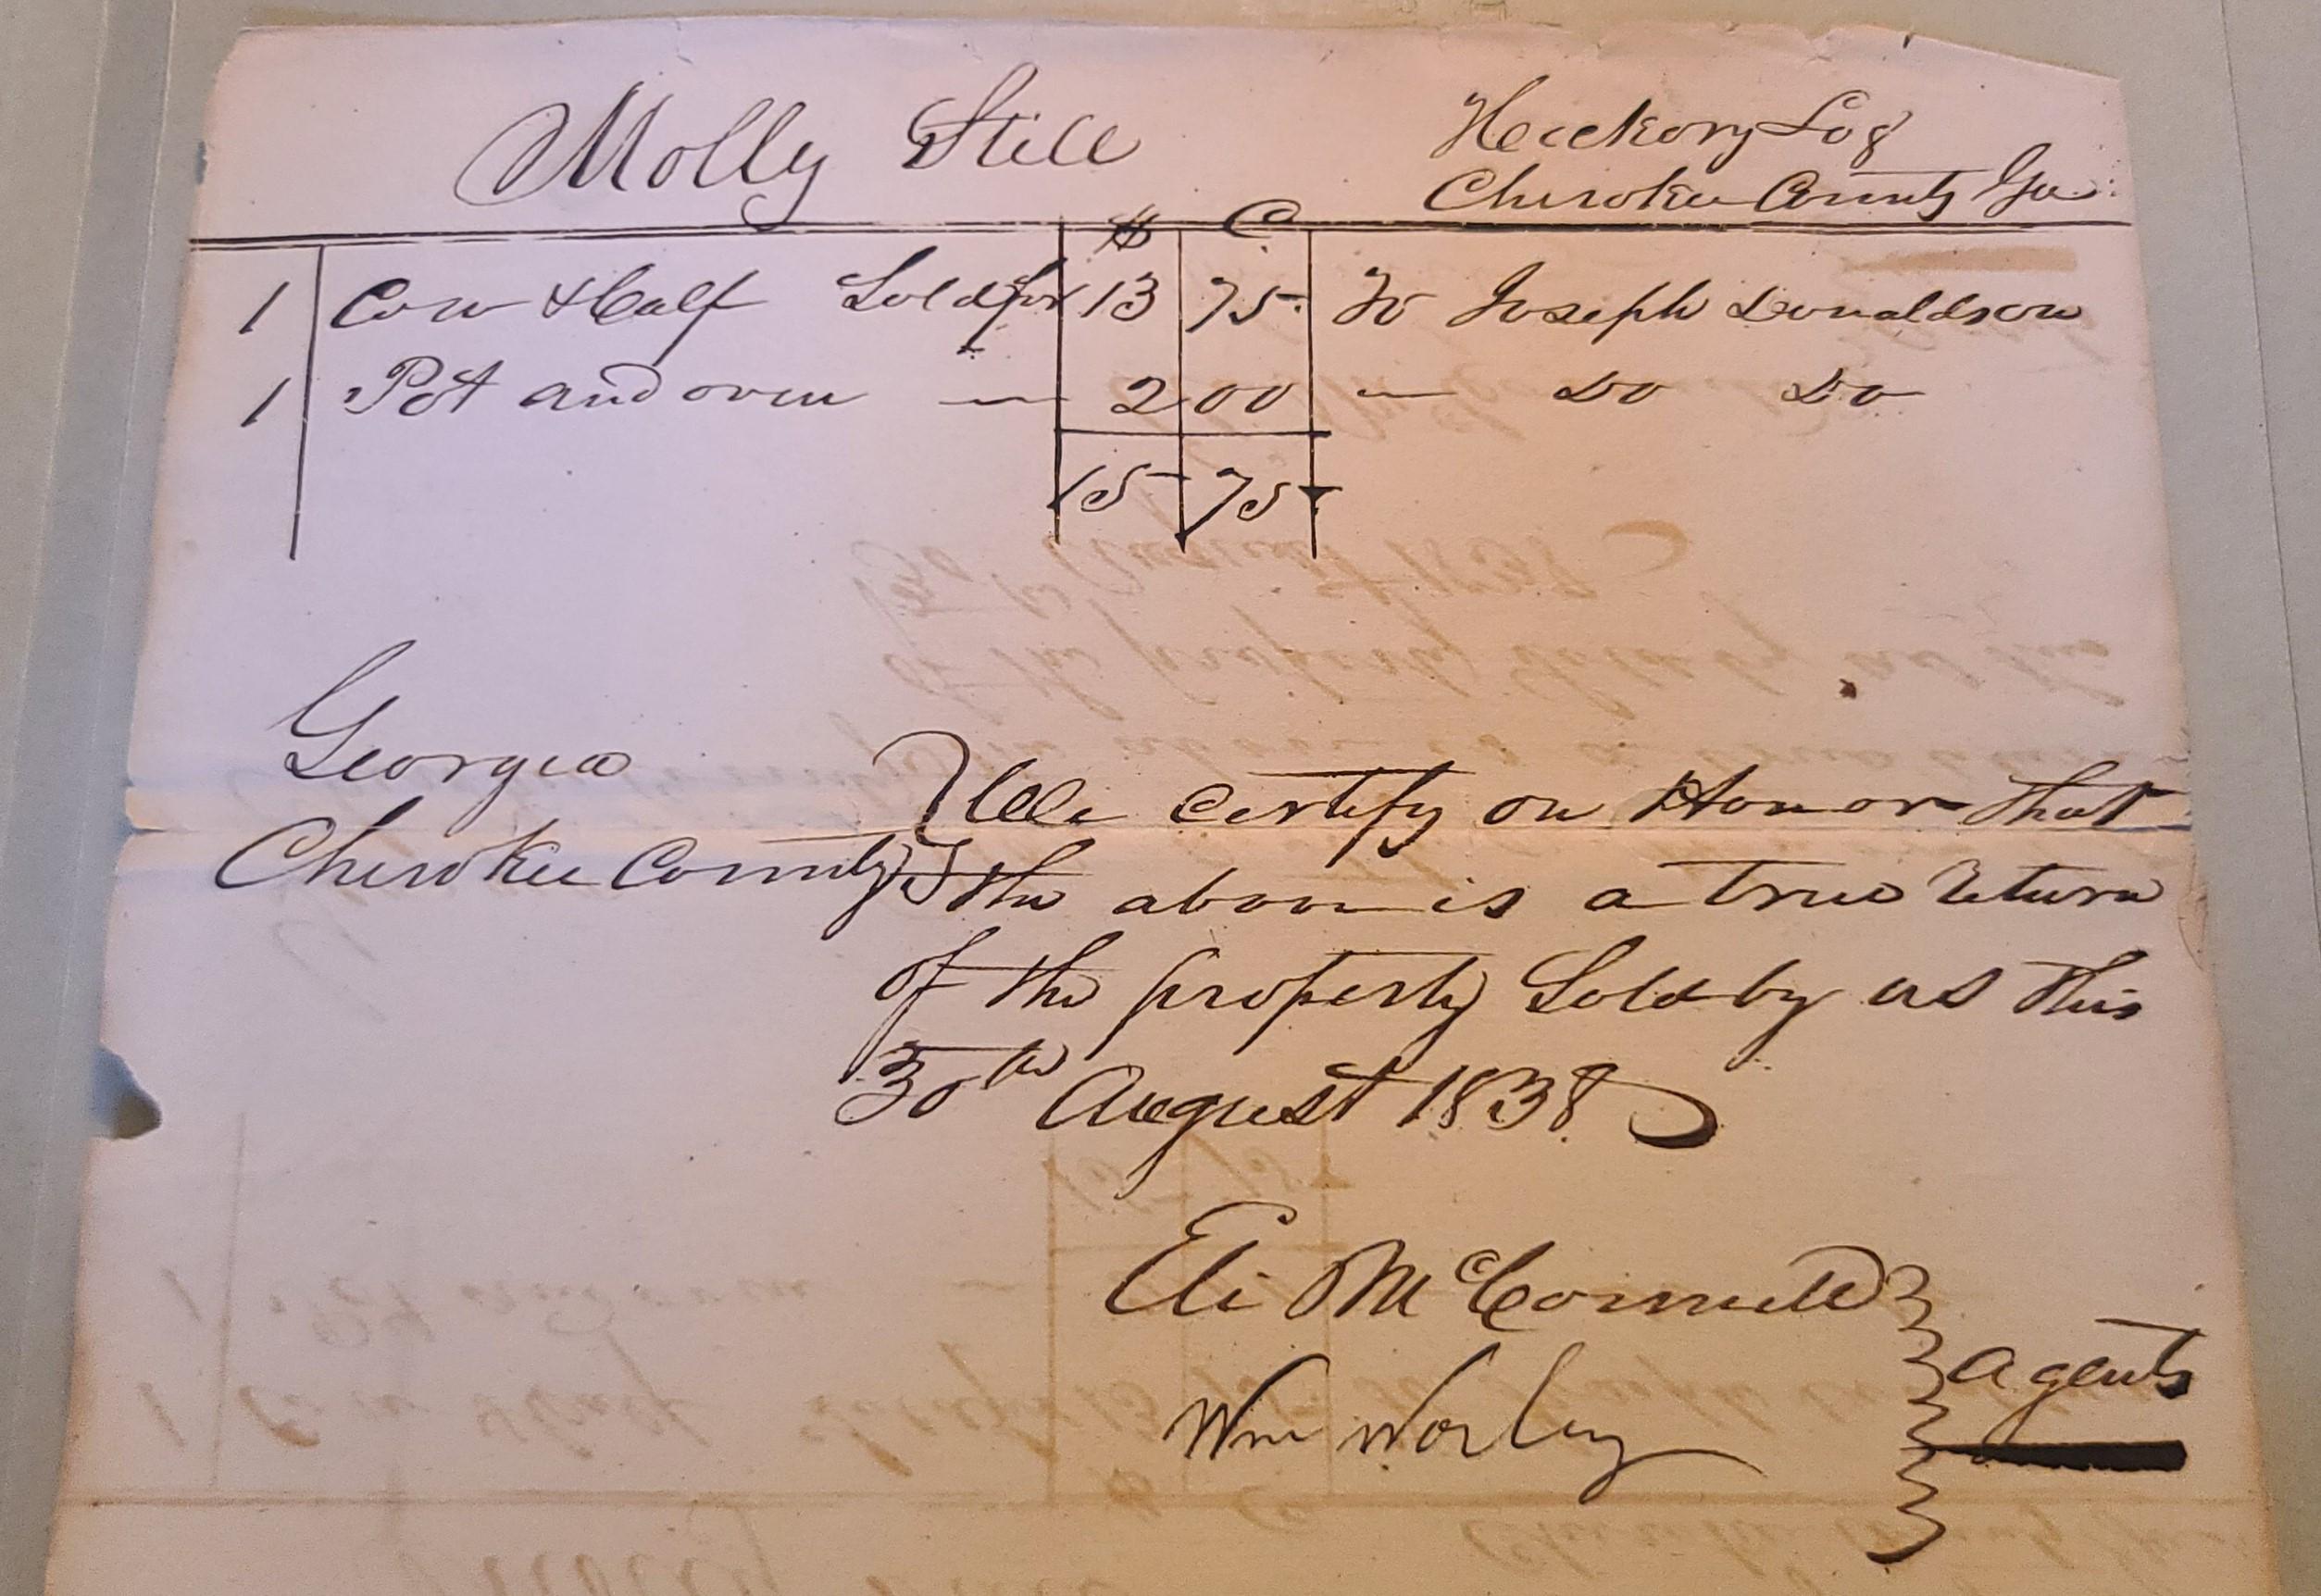 Molly Still
Heickory Log
Cherokee County Ga
$ C
1 Cow & Calf Sold for 13 75 To Joseph Donaldson
1 Pot and oven — 2 00 — Do Do
15 75
Georgia
Cherokee County
We certify on Honor that
the above is a true return
of the property Sold by us this
30th August 1838
Eli McConnell
Wm Worley
Agents